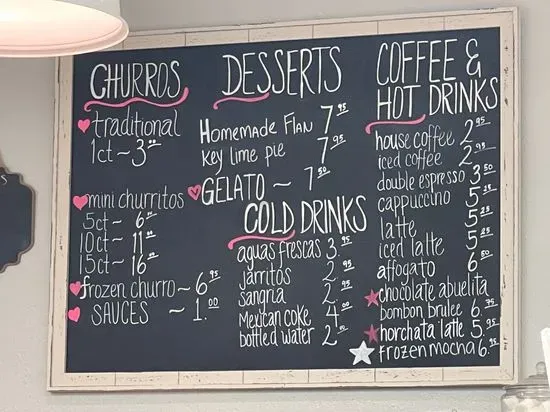 CHURROS
traditional
1ct ~ 3.00
mini churritos
5ct ~ 6
10ct ~ 11
15ct ~ 16
frozen churro ~ 6.95
SAUCES ~ 1.00
DESSERTS
Homemade Flan 7.95
Key lime pie 7.95
GELATO ~ 7.50
COLD DRINKS
aguas frescas 3.95
jarritos 2.95
sangria 2.95
Mexican coke 4.00
bottled water 2
COFFEE &
HOT DRINKS
house coffee 2.95
iced coffee 2.95
double espresso 3.50
cappuccino 5.25
latte 5.25
iced latte 5.25
affogato 6.50
chocolate abuelita
bombon brulee 6.75
horchata latte 5.95
Frozen mocha 6.